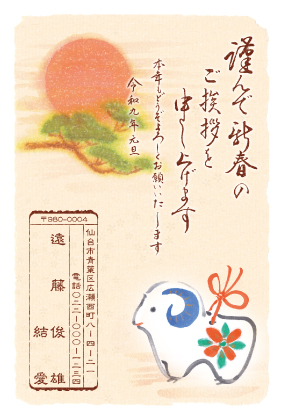 謹んで新春の
ご挨拶を
申し上げます
本年もどうぞよろしくお願いいたします
令和九年元旦
〒980-0004
仙台市青葉区広瀬西町八-四-二一
電話〇二二-〇〇〇-一二三四
遠藤俊雄
結愛